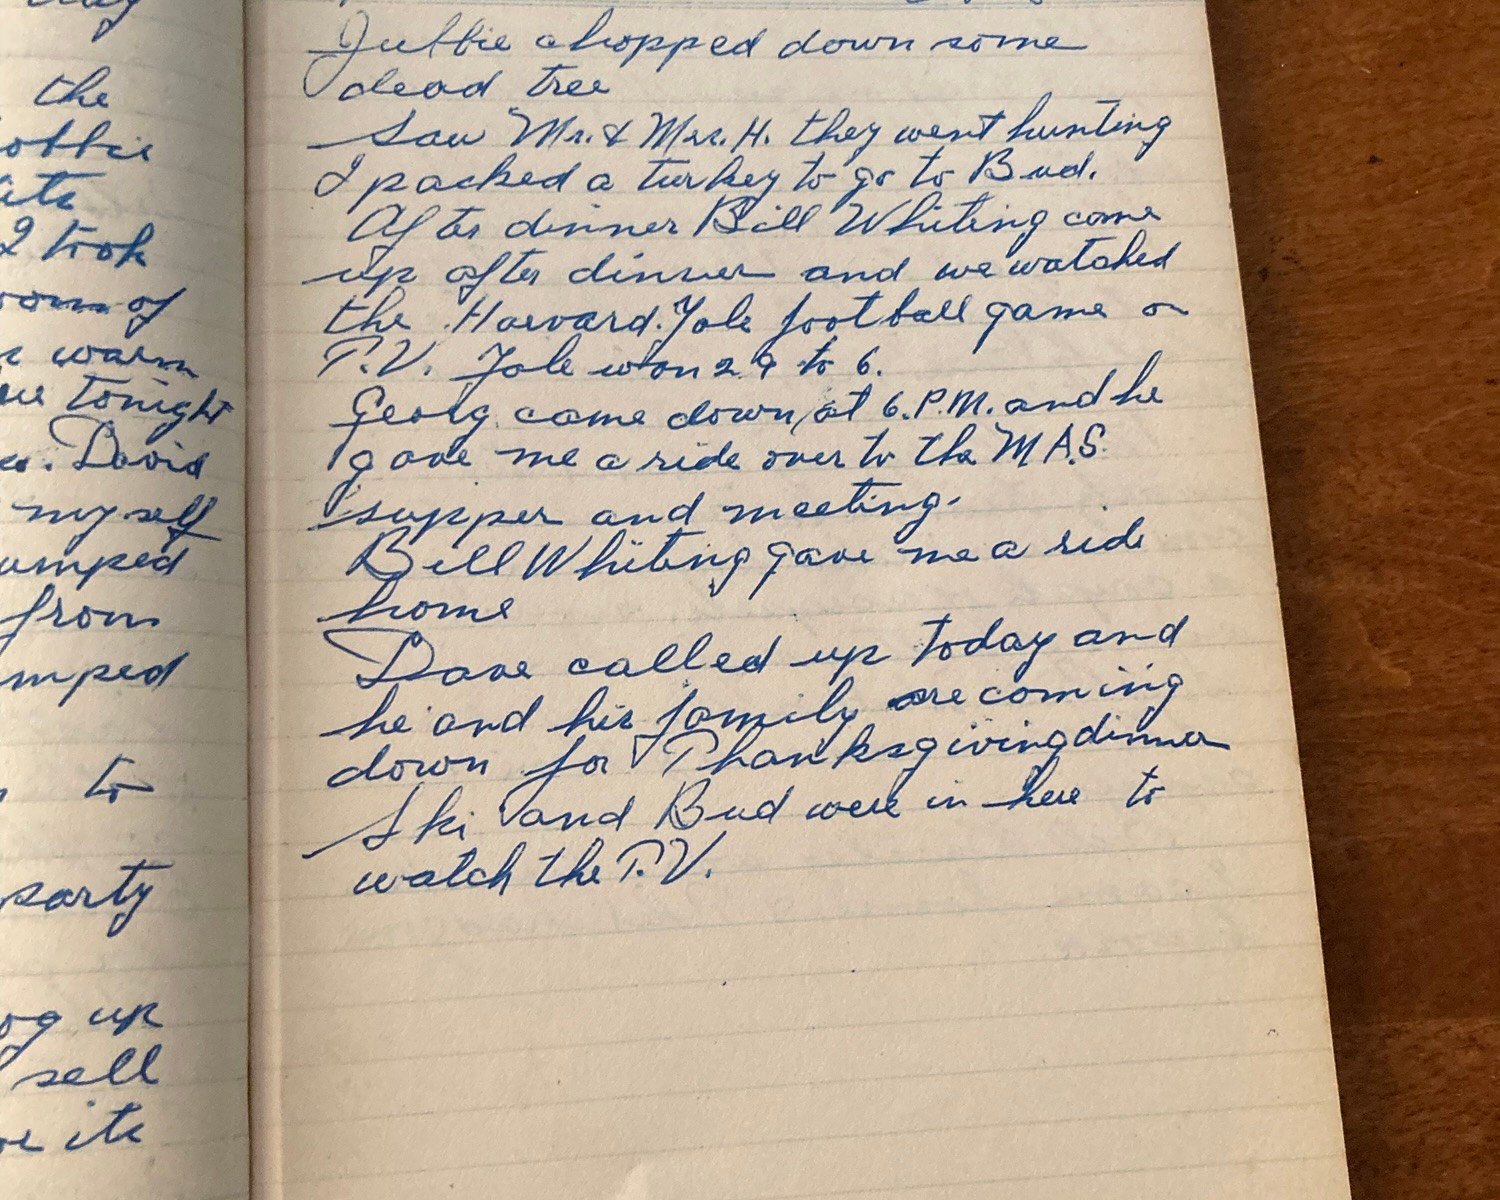 day
the
2 took
warm
tonight
David
myself
from
to
party
up
sell
its
chopped down some
dead tree
Saw Mr. & Mrs. H. they went hunting
I packed a turkey to go to Bud.
After dinner Bill Whiting came
up after dinner and we watched
the Harvard. Yale football game on
T.V. Yale won 29 to 6.
Georg came down at 6. P.M. and he
gave me a ride over to the M.A.S.
supper and meeting.
Bill Whiting gave me a ride
home
Dave called up today and
he and his family are coming
down for Thanksgiving dinner
Ski and Bud were in here to
watch the T.V.